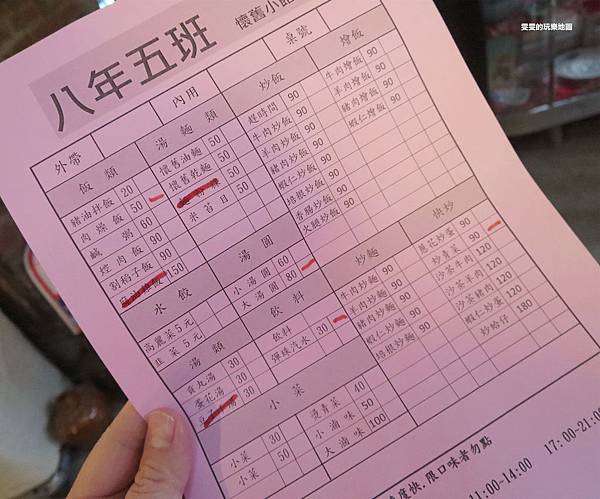 雯雯的玩樂地圖
八年五班 懷舊小館
外帶 內用 桌號
飯類
豬油拌飯 20
肉燥飯 50
鹹粥 60
焢肉飯 90
割稻子飯 90
150
水餃
高麗菜 5元
韭菜 5元
湯類
貢丸湯 30
蛋花湯 30
30
湯麵類
懷舊油麵 50
懷舊乾麵 50
50
米苔目 50
湯圓
小湯圓 60
大湯圓 80
飲料
飲料
彈珠汽水 30
小菜
小菜 30
小菜 50
燙青菜 40
小滷味 50
大滷味 100
炒飯
趕時間 90
牛肉炒飯 90
羊肉炒飯 90
豬肉炒飯 90
蝦仁炒飯 90
培根炒飯 90
香腸炒飯 90
火腿炒飯 90
炒麵
牛肉炒麵 90
羊肉炒麵 90
豬肉炒麵 90
蝦仁炒麵 90
培根炒麵 90
燴飯
牛肉燴飯 90
羊肉燴飯 90
豬肉燴飯 90
蝦仁燴飯 90
快炒
蔥花炒蛋 90
炒青菜 90
沙茶牛肉 120
沙茶羊肉 120
沙茶豬肉 120
蝦仁炒蛋 120
炒蛤仔 180
度快.限口味者勿點
11:00-14:00 17:00-21:00